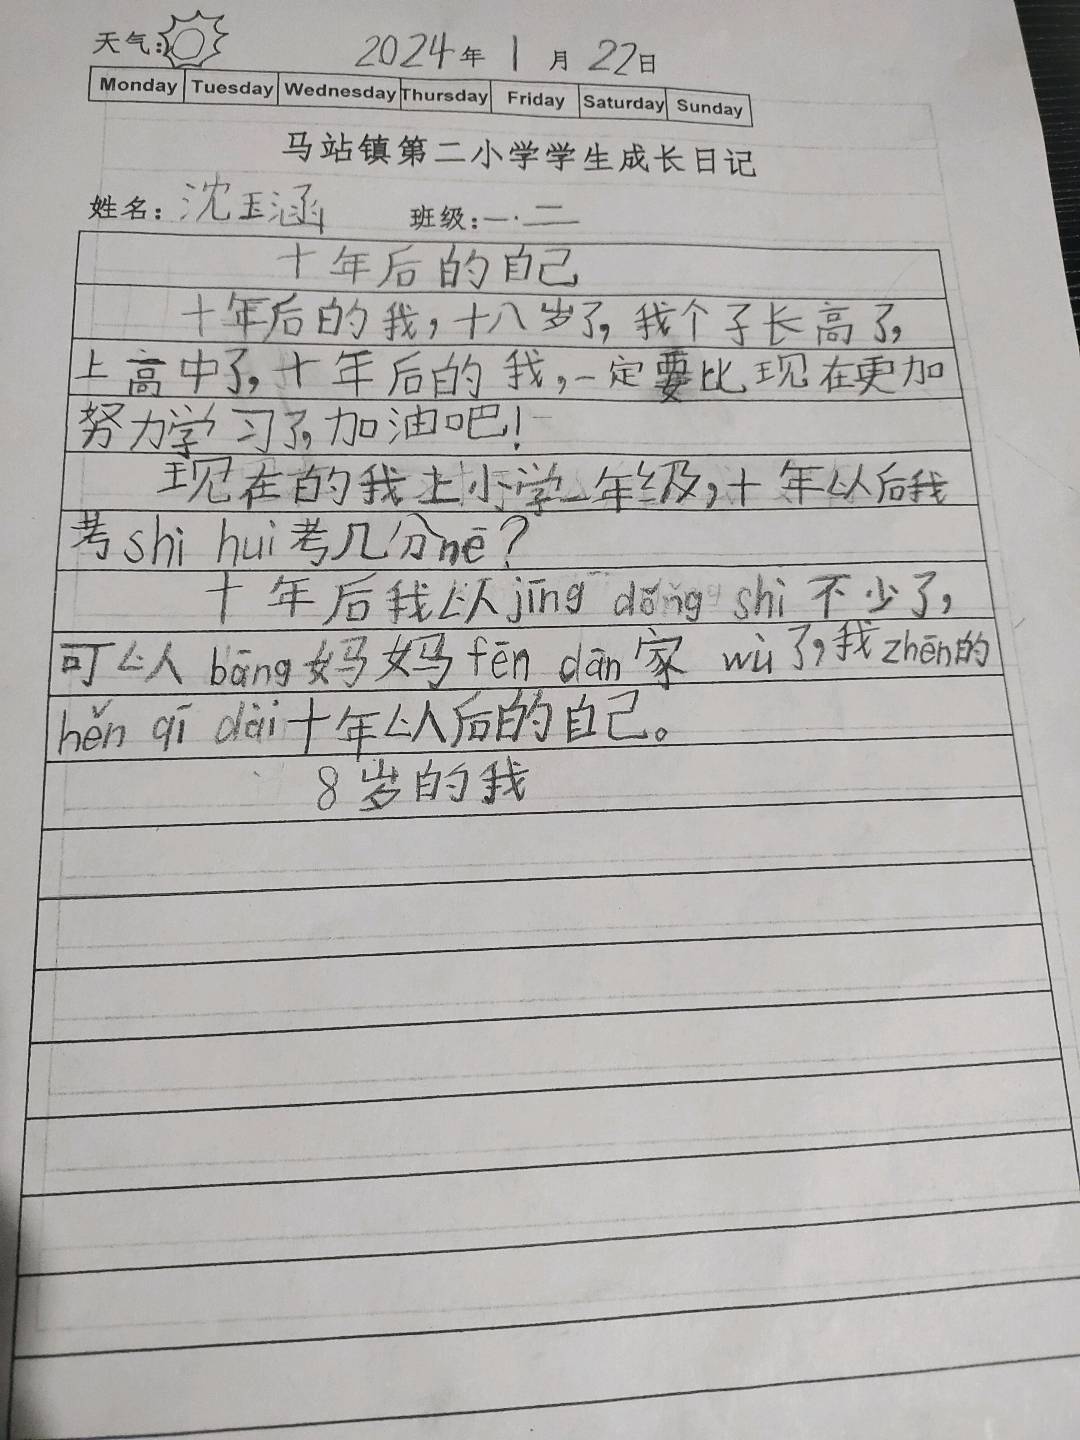 天气: 2024年1月22日
Monday Tuesday Wednesday Thursday Friday Saturday Sunday
马站镇第二小学学生成长日记
姓名: 沈玉涵 班级: 一.二
十年后的自己
十年后的我,十八岁了,我个子长高了,
上高中了,十年后的我,一定要比现在更加
努力学习了,加油吧!
现在的我上小学一年级,十年以后我
考shì huì考几分nē?
十年后我以jīng dǒng shì不少了,
可以 bāng 妈妈 fēn dān 家 wù 了,我 zhēn 的
hěn qī dài 十年以后的自己。
8岁的我